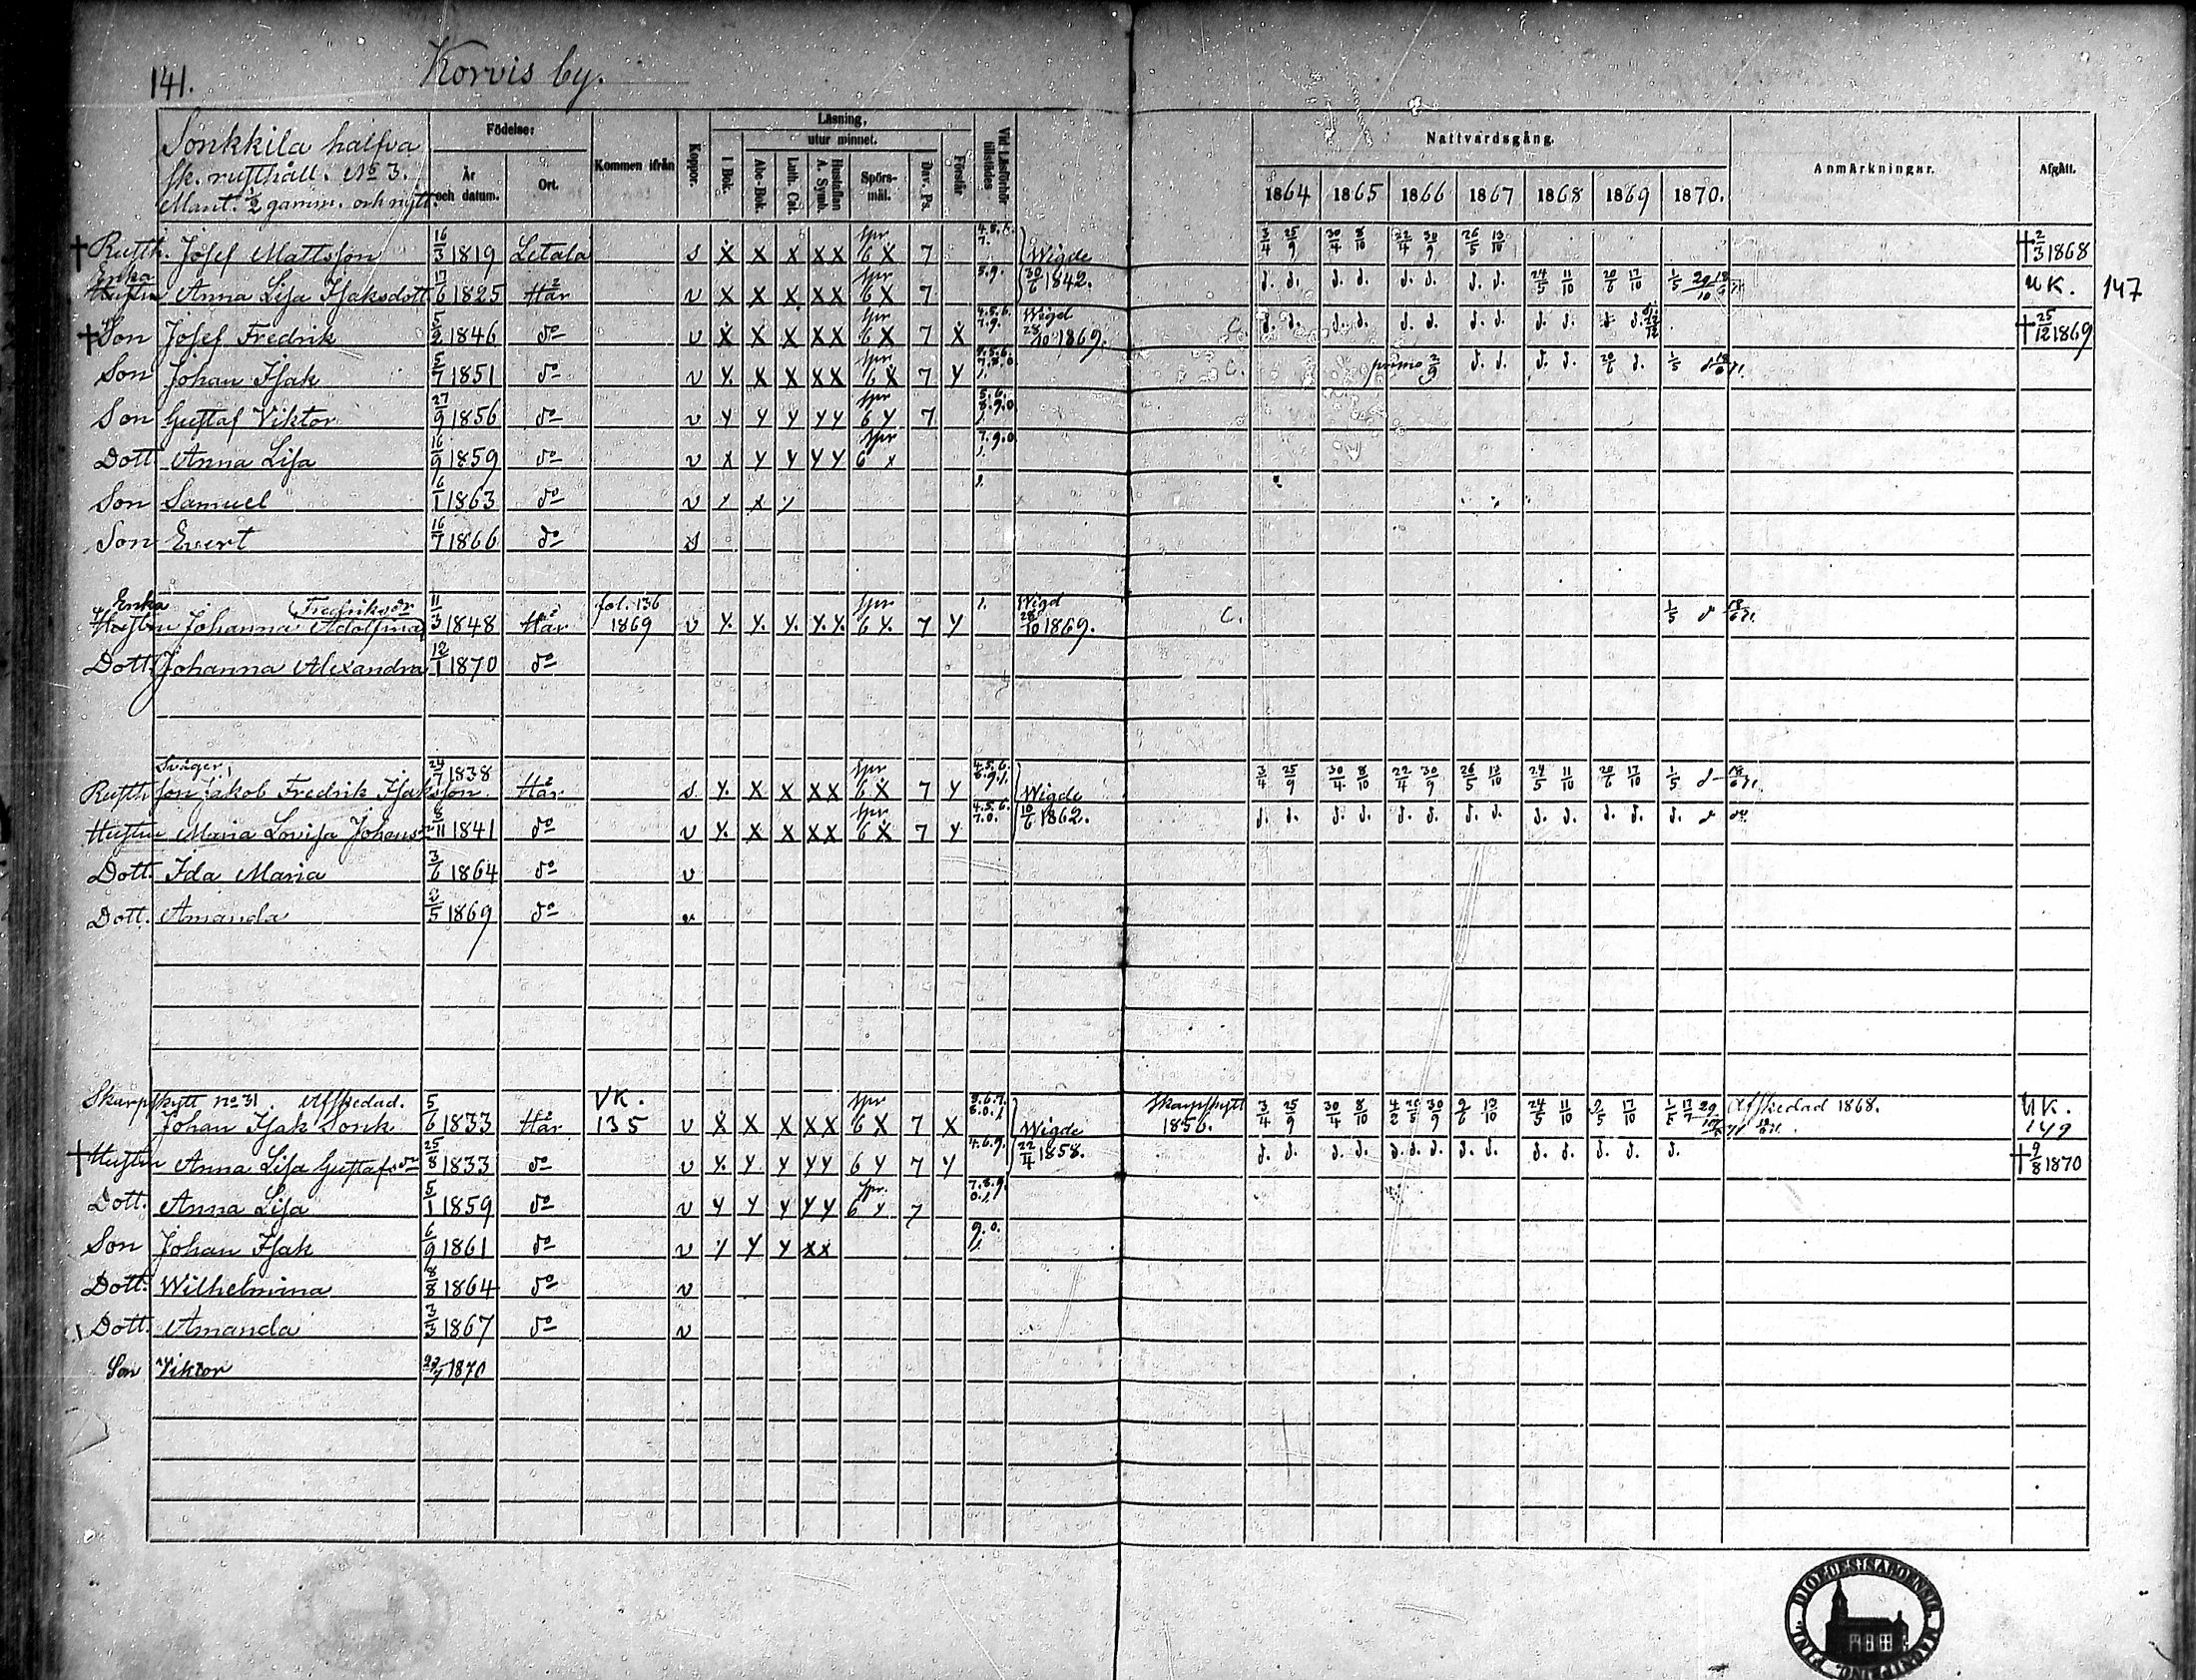 141. Korvis by.
Sonkkila halfva
sk. rusthåll. No 3.
Mant. 1/2 gamm. och nytt.
Födelse:
År och datum.
Ort.
Kommen ifrån
Koppor.
Läsning,
utur minnet.
I Bok.
Abc-Bok.
Luth. Cat.
A. Symb. Hustaflan
Spörs-mål.
Dav. Ps.
Förstår
Vid Läsförhör tillstädes
Nattvardsgång.
1864 1865 1866 1867 1868 1869 1870.
Anmärkningar.
Afgått.
† Rusth. Josef Mattsson 16/3 1819 Letala s X X X XX spr 6 X 7 Wigde 3/4 25/9 30/4 8/10 22/4 30/9 26/5 13/10 † 2/3 1868
Enka Hustru Anna Lisa Isaksdott. 17/6 1825 Här v X X X XX spr 6 X 7 5.9. 30/6 1842. d. d. d. d. d. d. d. d. 24/5 11/10 20/6 17/10 1/5 UK. 147
† Son Josef Fredrik 5/2 1846 do v X X X XX spr 6 X 7 X 4.5.6. 7.9. Wigd 28/10 1869. C. d. d. d. d. d. d. d. d. d. d. d. d. † 25/12 1869
Son Johan Isak 5/7 1851 do v Y. X X XX spr 6 X 7 Y C. primo 2/9 d. d. d. d. 20/6 d. 1/5
Son Gustaf Viktor 27/9 1856 do v Y Y Y YY spr 6 Y 7 5.6. 8.9.0
Dott. Anna Lisa 16/9 1859 do v X Y Y YY spr 6 x 7.9.0
Son Samuel 6/1 1863 do v
Son Evert 16/7 1866 do s
Enka Hustru Johanna Adolfina Fredriksdr 11/3 1848 Här fol. 136 1869 v Y. Y. Y. Y.Y. spr 6 Y. 7 Y 1. Wigd 28/10 1869. C. 1/5 d
Dott. Johanna Alexandra 12/1 1870 do
Svåger,
Rusth.son Jakob Fredrik Isaksson. 24/7 1838 Här s Y. X X XX spr 6 X 7 Y 4.5.6. 8.9.1. Wigde 3/4 25/9 30/4 8/10 22/4 30/9 26/5 13/10 24/5 11/10 20/6 17/10 1/5 d
Hustru Maria Lovisa Johansdr 11 1841 do v Y. X X XX spr 6 X 7 Y 4.5.6. 7.0. 10/6 1862. d. d. d. d. d. d. d. d. d. d. d. d. d. d
Dott. Ida Maria 3/6 1864 do v
Dott. Amanda 2/5 1869 do
Skarpskytt no 31. Afskedad.
Johan Isak Sonk 5/6 1833 Här VK. 135 v X X X XX spr 6 X 7 X Wigde Skarpskytt 1856. 3/4 25/9 30/4 8/10 30/9 13/10 24/5 11/10 17/10 1/5 Afskedad 1868. UK. 149
† Hustru Anna Lisa Gustafsdr 25/8 1833 do v Y. Y Y YY 6 Y 7 Y 4.6.9. 22/4 1858. d. d. d. d. d. d. d. d. d. d. d. d. d. d. † 9/8 1870
Dott. Anna Lisa 5/1 1859 do v Y Y Y YY spr. 6 Y 7 7.8.9. 0.1.
Son Johan Isak 6/9 1861 do v Y Y Y XX 9.0.
Dott. Wilhelmina 8/8 1864 do v
Dott. Amanda 3/3 1867 do v
Son Viktor 1870